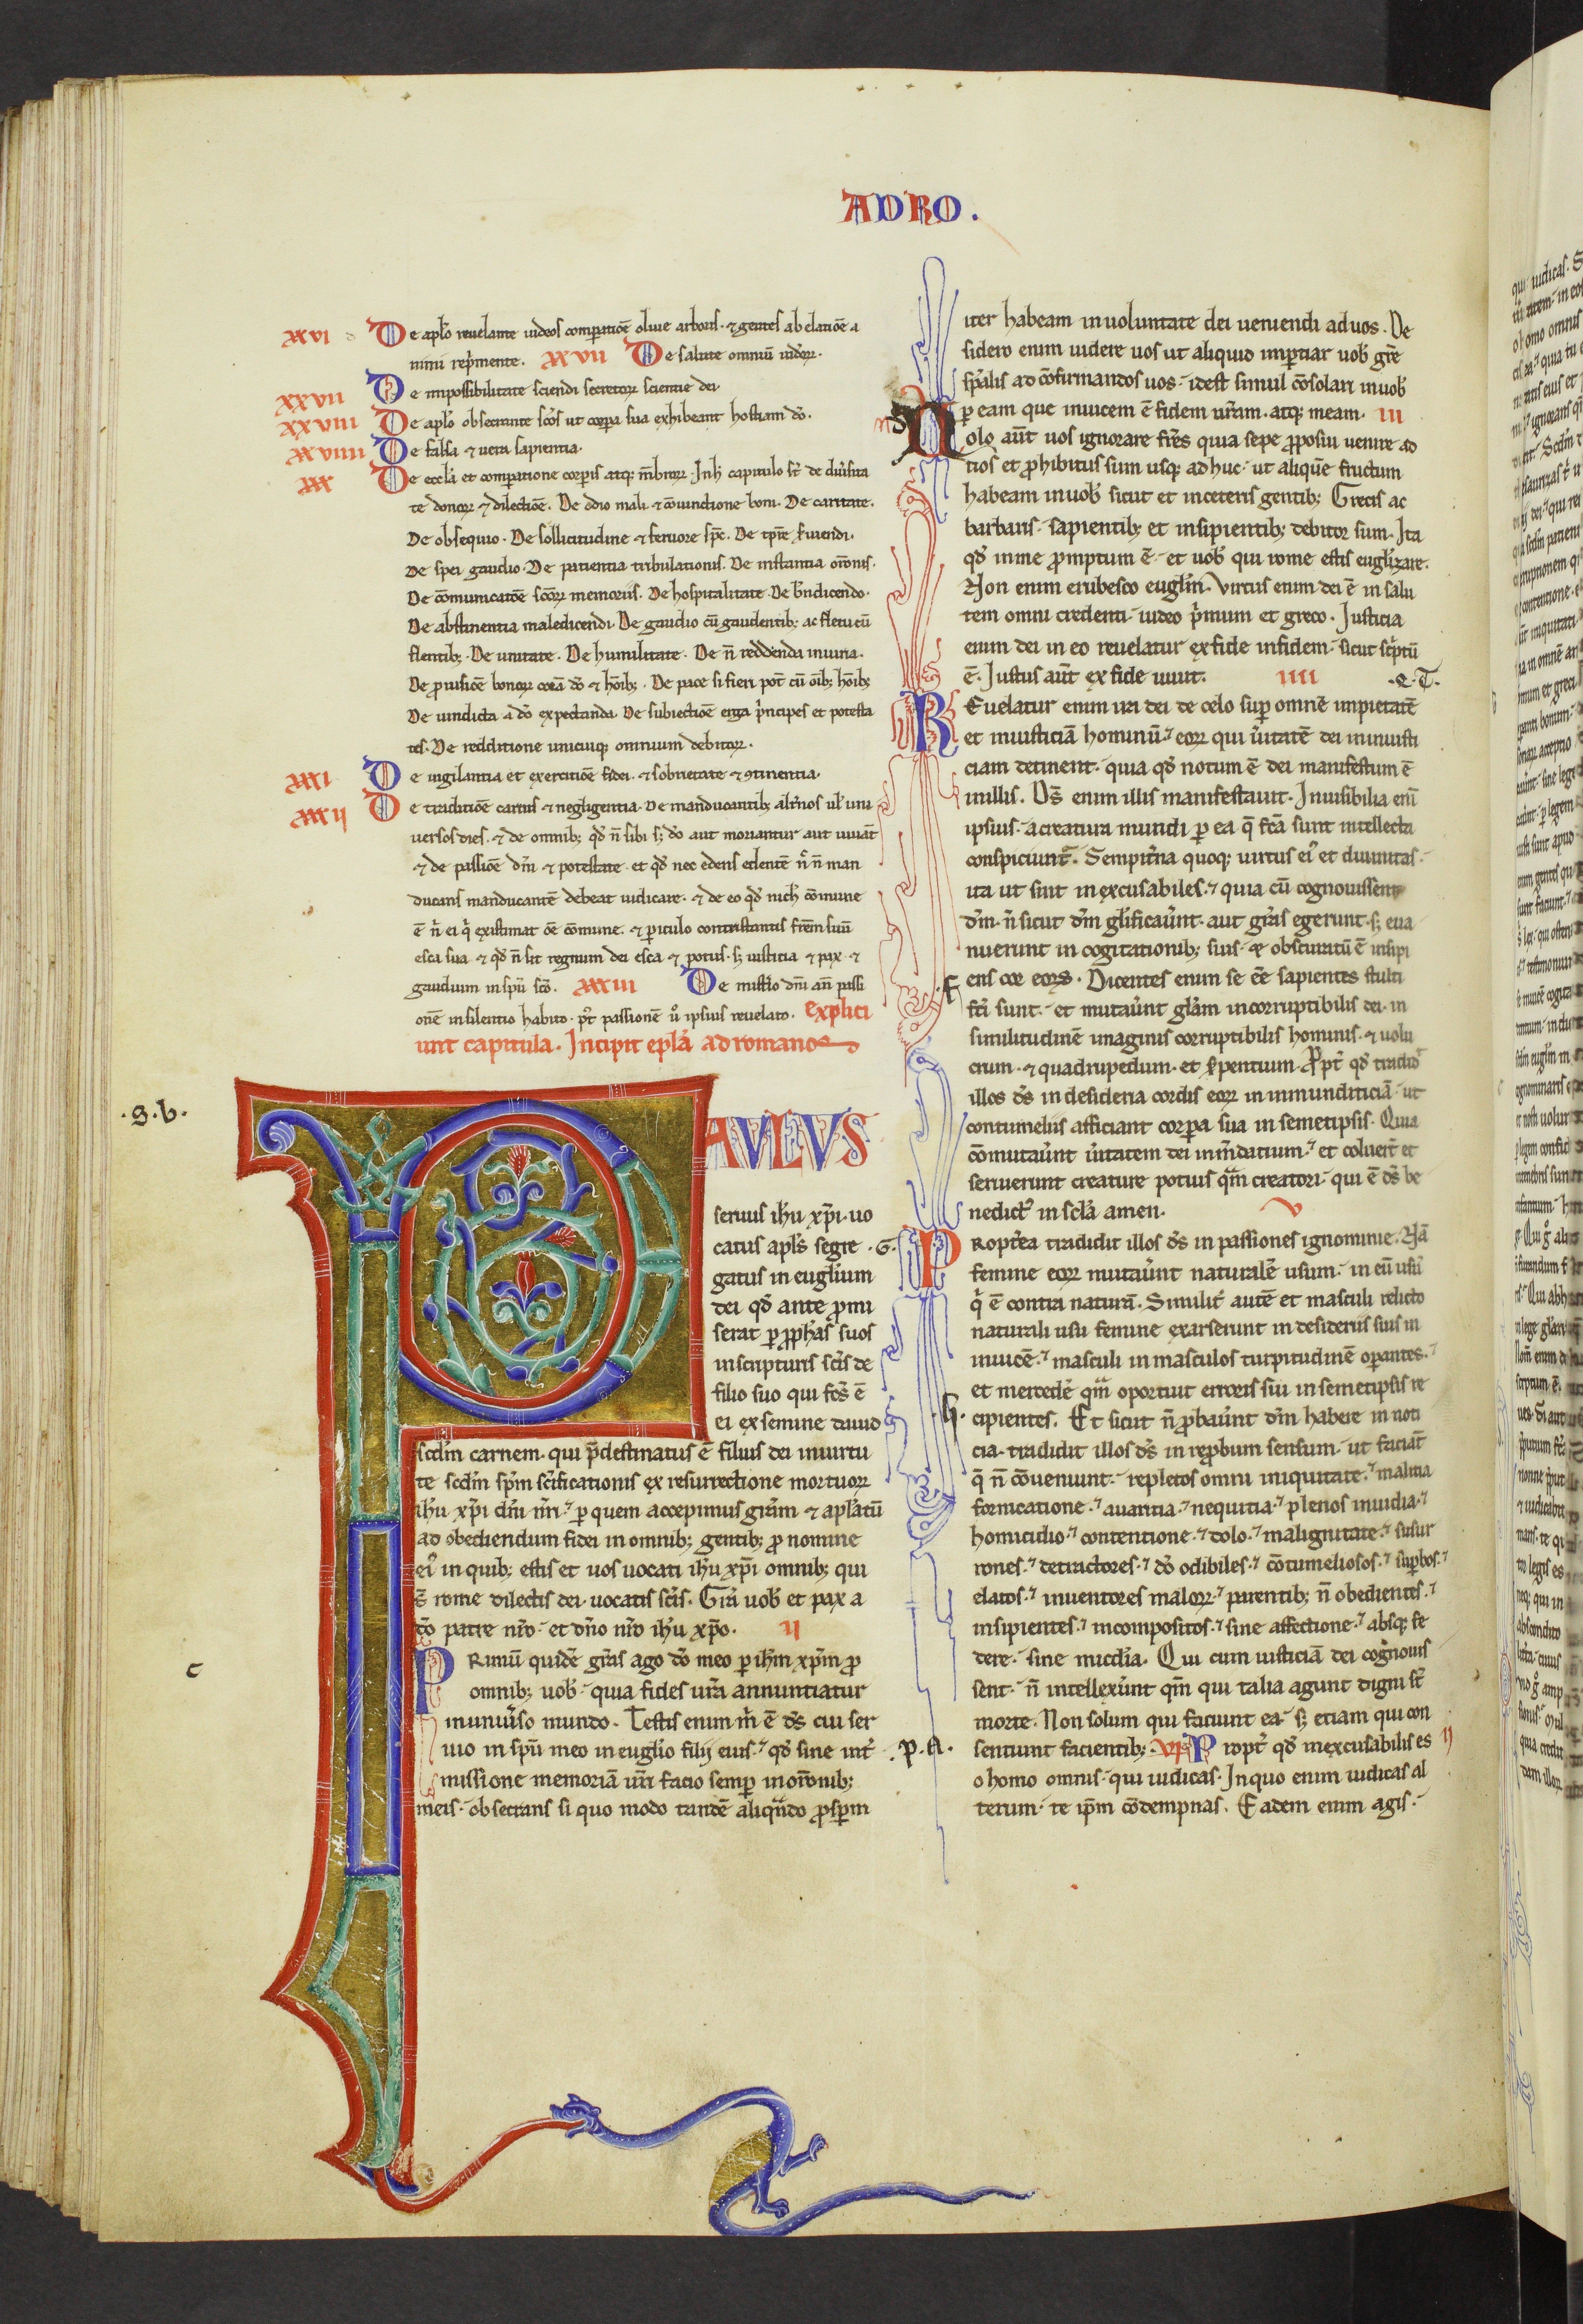 ADRO.
xxvi De apl'o reuelante iudeos comparatiōe oliue arboris. ⁊ gentes ab elatiōe a
nimi rep̄mente. xxvii De salute omniū iudeoꝝ.
xxvii De impossibilitate sciendi secretoꝝ scientie dei
xxviii De apl'o obsecrante sc̄os ut corpora sua exhibeant hostiam dō.
xxviiii De falsa ⁊ uera sapientia.
xxx De eccl'a et comparatione corꝑis atqꝫ m̄broꝝ. In h̓ capitulo s̄t de diu̓sita
te donoꝝ ⁊ dilectiōe. De odio mali ⁊ cōiunctione boni. De caritate.
De obsequio. De sollicitudine ⁊ feruore sp̄c. De tp̄re s̓uiendi.
De spei gaudio. De patientia tribulationis. De instantia orōnis.
De cōmunicatōe sc̄oꝝ memoriis. De hospitalitate. De b̄ndicendo.
De abstinentia maledicendi. De gaudio cū gaudentibꝫ ac fletu cū
flentibꝫ. De unitate. De humilitate. De n̄ reddenda iniuria.
De ꝓuisiōe bonoꝝ corā dō ⁊ hōibꝫ. De pace si fieri pot̄ cū oīb; hōibꝫ
De uindicta a dō expectanda. De subiectiōe erga p̓ncipes et potesta
tes. De redditione unicuiqꝫ omnium debitoꝝ.
xxxi De uigilantia et exercitiōe fidei. ⁊ sobrietate ⁊ ꝯtinentia.
xxxii De traditiōe carnis ⁊ negligentia. De manducantibꝫ alt̓nos ul' uni
uersos dies. ⁊ de omnibꝫ qd̓ n̄ sibi sꝫ dō aut moriantur aut uiuāt
⁊ de passiōe dn̄i ⁊ potestate. et qd̓ nec edens edentē n̓ n̄ man
ducans manducantē debeat iudicare. ⁊ de eo qd̓ nich̓ cōmune
ē n̄ ei q̓ existimat ēē cōmune. ⁊ periculo contristantis frēm suū
esca sua ⁊ qd̓ n̄ sit regnum dei esca ⁊ potus. sꝫ iusticia ⁊ pax ⁊
gaudium in sp̄u sc̄o. xxxiii De mist̓io dn̄i an̄ passi
onē in silentio habito. p̓t passionē u̓ ipsius reuelato. explici
unt capitula. Incipit epl'a ad romanos
.g.b.
PAULUS
seruus ih̓u xp̄i. uo
catus apl's segre
gatus in eugl'ium
dei qd̓ ante ꝓmi
serat ꝑ ꝓph̓as suos
in scripturis sc̄is de
filio suo qui fc̄s ē
ei ex semine dauid
scd̓m carnem. qui p̄destinatus ē filius dei in uirtu
te scd̓m sp̄m sc̄ificationis ex resurrectione mortuoꝝ
ih̓u xp̄i dn̄i nr̄i. ⁊ ꝑ quem accepimus gr̄am ⁊ apl'atū
ad obediendum fidei in omnibꝫ gentibꝫ ꝓ nomine
ei̓ in quibꝫ estis et uos uocati ih̓u xp̄i omnibꝫ qui
s̄ rome dilectis dei. uocatis sc̄is. Gr̄a uob̓ et pax a
dō patre nr̄o. et dn̄o nr̄o ih̓u xp̄o. ii
c
PRimū quidē gr̄as ago dō meo ꝑ ih̓m xp̄m ꝓ
omnibꝫ uob̓. quia fides ur̄a annuntiatur
in uniu̓so mundo. Testis enim m̓ ē ds̄ cui ser
uio in sp̄u meo in eugl'io filij eius. ⁊ qd̓ sine int̓
missione memoriā ur̄i facio semꝑ in orōnibꝫ
meis. obsecrans si quo modo tandē aliqn̄do ꝓspm
iter habeam in uoluntate dei ueniendi ad uos. De
sidero enim uidere uos ut aliquid impertiar uob̓ gr̄e
sp̄alis ad cōfirmandos uos. idest simul cōsolari in uob̓
ꝑ eam que inuicem ē fidem ur̄am. atqꝫ meam. iii
Nolo aut̄ uos ignorare fr̄es quia sepe ꝓposui uenire ad
uos et ꝓhibitus sum usqꝫ adhuc. ut aliquē fructum
habeam in uob̓ sicut et in ceteris gentibꝫ. Grecis ac
barbaris. sapientibꝫ et insipientibꝫ debitor sum. Ita
qd̓ in me promptum ē. et uob̓ qui rome estis eugl'izare.
Non enim erubesco eugl'm. Virtus enim dei ē in salu
tem omni credenti. iudeo p̓mum et greco. Iusticia
enim dei in eo reuelatur ex fide in fidem. sicut sc̓ptū
ē. Iustus aut̄ ex fide uiuit. iiii .e.T.
REuelatur enim ira dei de celo suꝑ omnē impietatē
et iniusticiā hominū. ⁊ eoꝝ qui u̓itatē dei in iniusti
ciam detinent. quia qd̓ notum ē dei manifestum ē
in illis. Ds̄ enim illis manifestauit. Inuisibilia eni
ipsius. a creatura mundi ꝑ ea q̄ fc̄a sunt intellecta
conspiciunt̓. Sempit̓na quoqꝫ uirtus ei̓ et diuinitas.
ita ut sint inexcusabiles. ⁊ quia cū cognouissent
dm̄. n̄ sicut dm̄ gl'ificau̓nt. aut gr̄as egerunt. sꝫ eua
nuerunt in cogitationibꝫ suis. ⁊ obscuratū ē insipi
.F. ens cor eoꝝ. Dicentes enim se ēē sapientes stulti
fc̄i sunt. et mutau̓nt gl'am incorruptibilis dei. in
similitudinē imaginis corruptibilis hominis. ⁊ uolu
crum. ⁊ quadrupedum. et s̓pentium. Ꝓpt̓ qd̓ tradid̓
illos ds̄ in desideria cordis eoꝝ in inmunditiciā. ut
contumeliis afficiant corpora sua in semetipsis. Quia
cōmutau̓nt u̓itatem dei in m̄datium. ⁊ et coluer̄t et
seruierunt creature potius qm̄ creatori. qui ē ds̄ be
nedict̓ in scl'a amen. v
.G. PRopt̓ea tradidit illos ds̄ in passiones ignominie. Nā
femine eoꝝ mutau̓nt naturalē usum. in eū usū
q̓ ē contra naturā. Similit̓ autē et masculi relicto
naturali usu femine exarserunt in desideriis suis in
inuicē. ⁊ masculi in masculos turpitudinē oꝑantes. ⁊
et mercedē qm̄ oportuit erroris sui in semetipsis re
.h. cipientes. Et sicut n̄ ꝓbau̓nt dm̄ habere in noti
cia. tradidit illos ds̄ in reꝓbum sensum. ut faciāt
q̄ n̄ cōueniunt. repletos omni iniquitate. ⁊ malitia
fornicatione. ⁊ auaritia. ⁊ nequitia. ⁊ plenos inuidia. ⁊
homicidio. ⁊ contentione. ⁊ dolo. ⁊ malignitate. ⁊ susur
rones. ⁊ detractores. ⁊ dō odibiles. ⁊ cōtumeliosos. ⁊ suꝑbos. ⁊
elatos. ⁊ inuentores maloꝝ. ⁊ parentibꝫ n̄ obedientes. ⁊
insipientes. ⁊ incompositos. ⁊ sine affectione. ⁊ absqꝫ fe
dere. sine mic̄dia. Qui cum iusticiā dei cognouis
sent. n̄ intellexer̄nt qm̄ qui talia agunt digni s̄t
morte. Non solum qui faciunt ea. sꝫ etiam qui con
.p.A. sentiunt facientibꝫ. vi Propt̓ qd̓ inexcusabilis es ij
o homo omnis. qui iudicas. In quo enim iudicas al
terum. te ip̄m cōdempnas. Eadem enim agis.